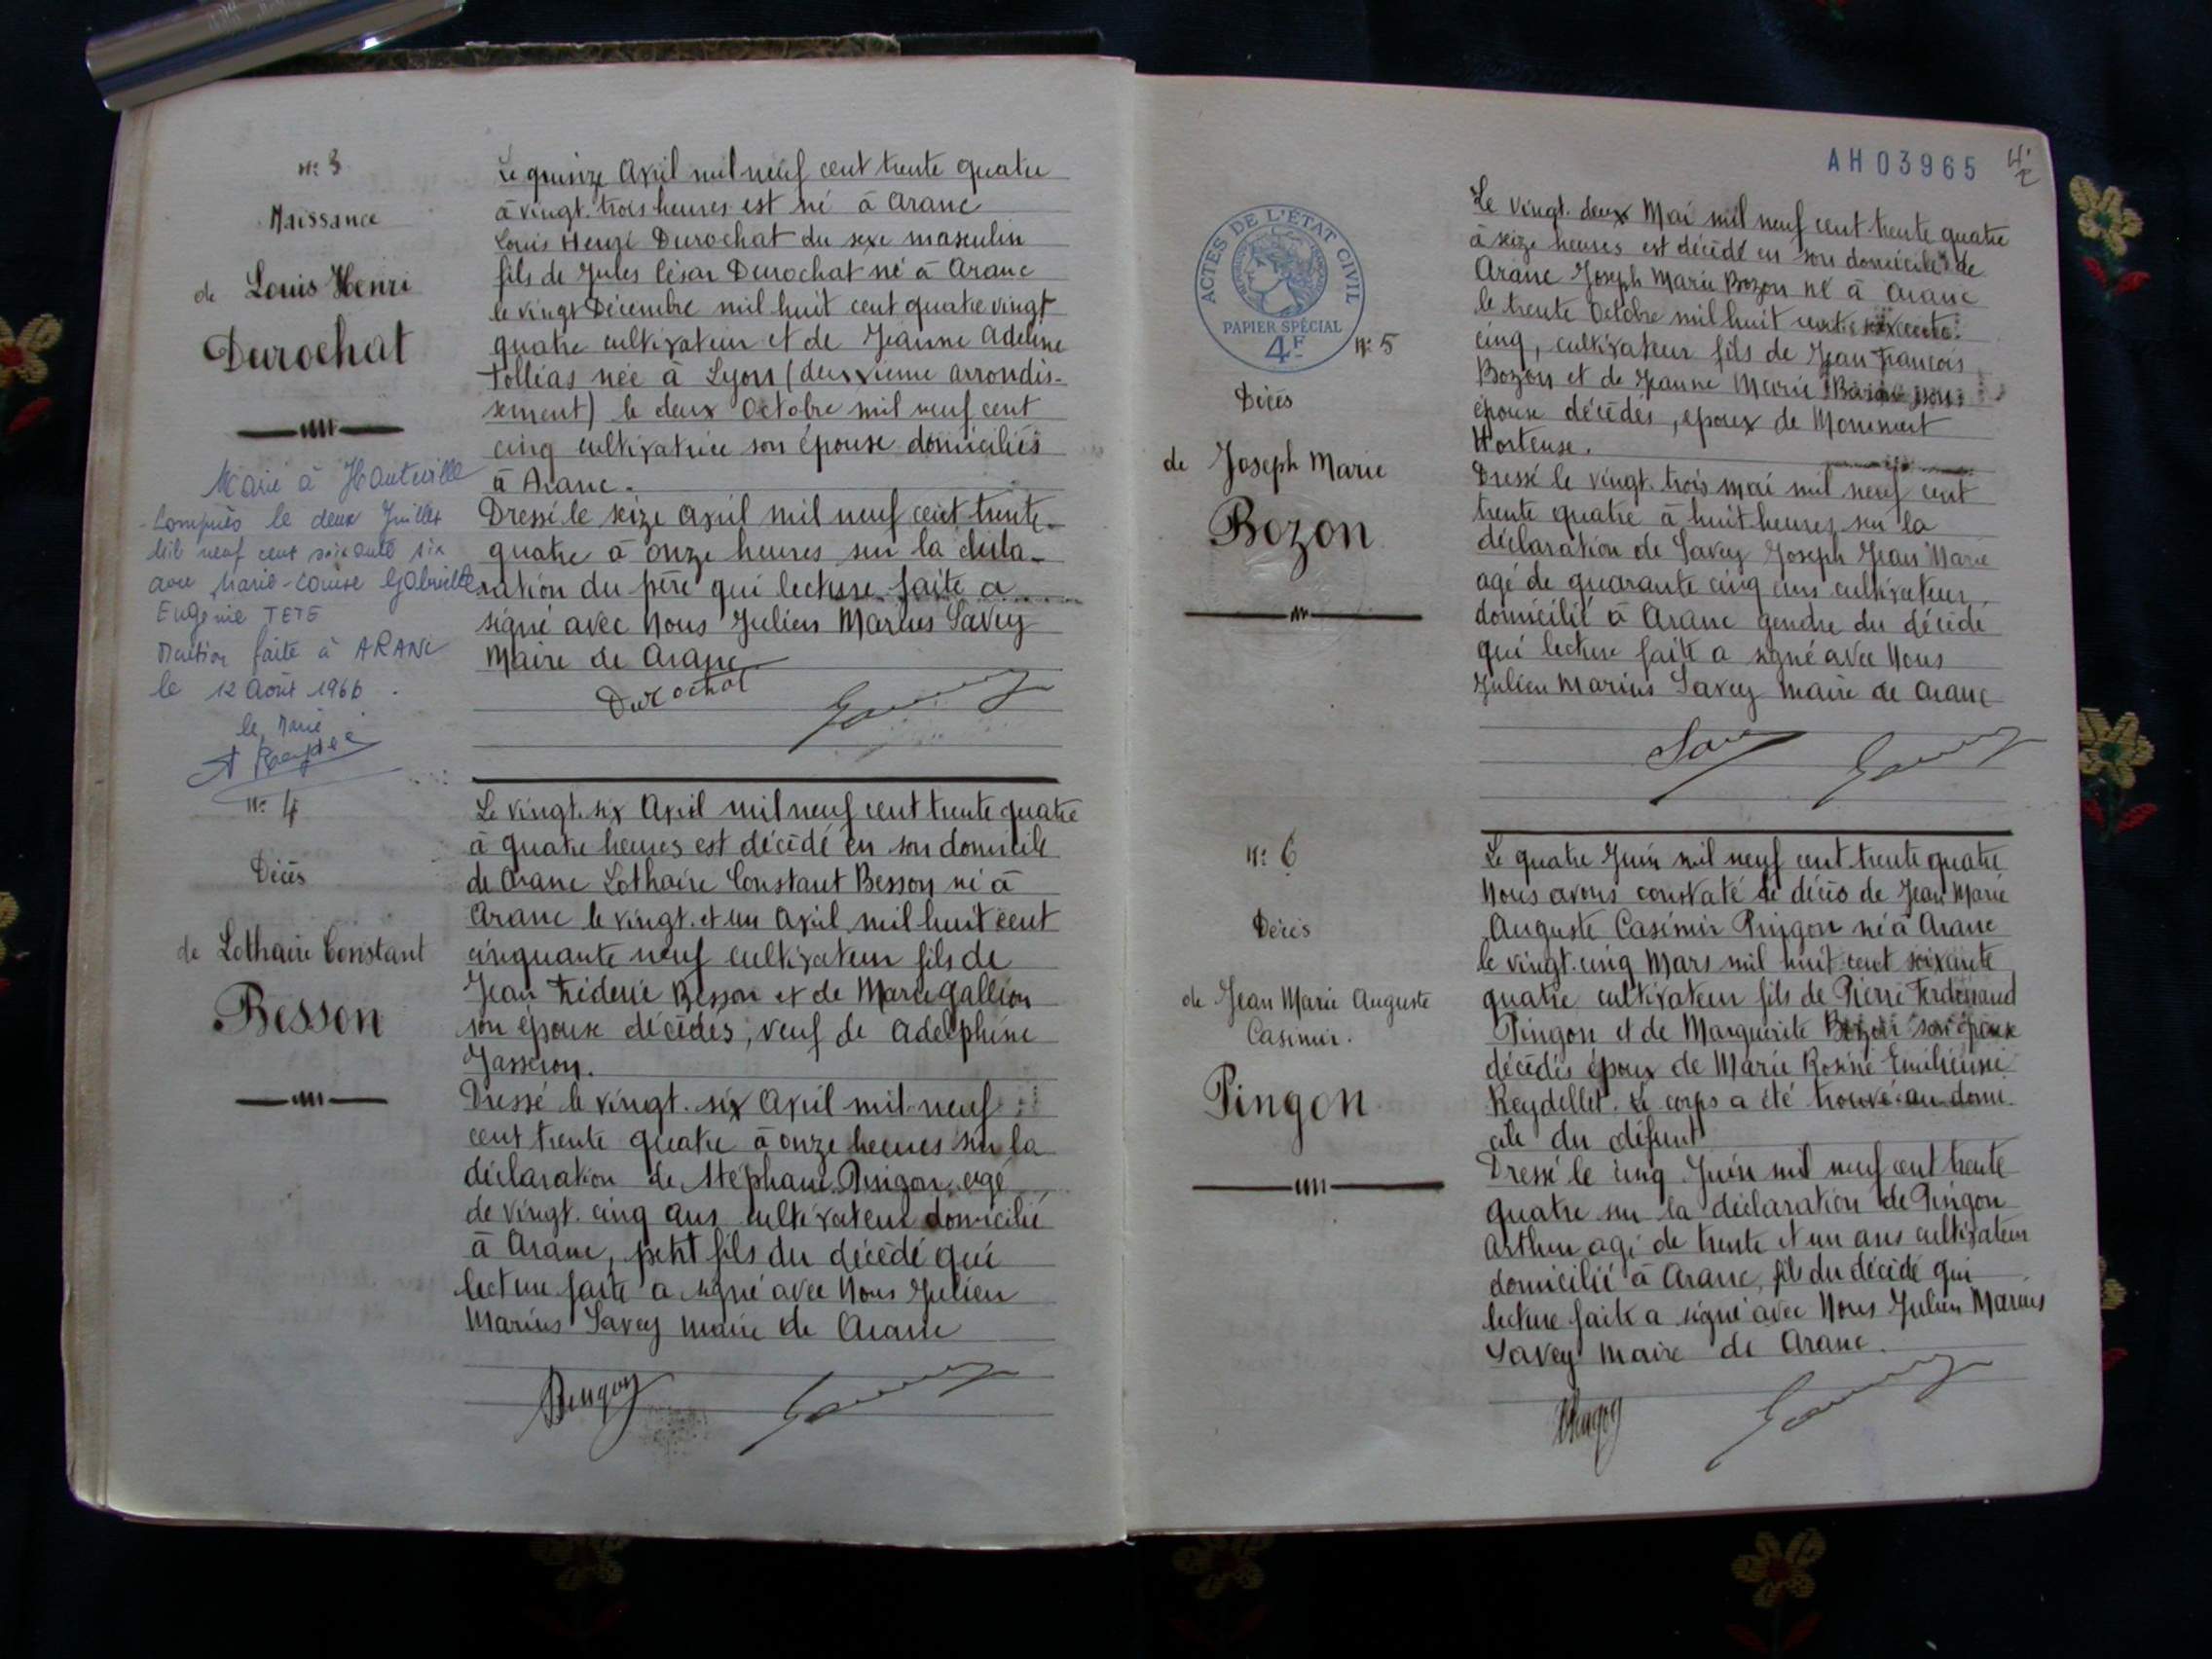 N° 3
Naissance
de Louis Henri
Durochat
Marié à Hauteville
Lompnès le deux Juillet
mil neuf cent soixante six
avec Marie-Louise Gabrielle
Eugénie TETE
Mention faite à ARANC
le 12 Août 1966.
le Maire
Le quinze Avril mil neuf cent trente quatre
à vingt. trois heures est né à Aranc
Louis Henri Durochat du sexe masculin
fils de Jules César Durochat né à Aranc
le vingt Décembre mil huit cent quatre vingt
quatre cultivateur et de Jeanne Adeline
Tollias née à Lyon (deuxième arrondis-
sement) le deux Octobre mil neuf cent
cinq cultivatrice son épouse domiciliés
à Aranc.
Dressé le seize Avril mil neuf cent trente-
quatre à onze heures sur la décla-
ration du père qui lecture faite a
signé avec Nous Julien Marius Savey
Maire de Aranc
Durochat
N° 4
Décès
de Lothaire Constant
Besson
Le vingt. six Avril mil neuf cent trente quatre
à quatre heures est décédé en son domicile
de Aranc Lothaire Constant Besson né à
Aranc le vingt. et un Avril mil huit cent
cinquante neuf cultivateur fils de
Jean Fréderic Besson et de Marie Gallion
son épouse décédés, veuf de Adelphine
Jasseron.
Dressé le vingt. six Avril mil neuf
cent trente quatre à onze heures sur la
déclaration de Stéphane Pingon agé
de vingt. cinq ans cultivateur domicilié
à Aranc, petit fils du décédé qui
lecture faite a signé avec Nous Julien
Marius Savey maire de Aranc
Pingon
AH03965
ACTES DE L'ÉTAT CIVIL
PAPIER SPÉCIAL
4F
N° 5
Décès
de Joseph Marie
Bozon
Le vingt. deux Mai mil neuf cent trente quatre
à seize heures est décédé en son domicile de
Aranc Joseph Marie Bozon né à Aranc
le trente Octobre mil huit cent
cinq, cultivateur fils de Jean François
Bozon et de Jeanne Marie
épouse décédés, époux de Monnet
Hortense.
Dressé le vingt. trois mai mil neuf cent
trente quatre à huit heures sur la
déclaration de Savey Joseph Jean Marie
agé de quarante cinq ans cultivateur
domicilié à Aranc gendre du décédé
qui lecture faite a signé avec Nous
Julien Marius Savey maire de Aranc
N° 6
Décès
de Jean Marie Auguste
Casimir.
Pingon
Le quatre Juin mil neuf cent trente quatre
Nous avons constaté le décès de Jean Marie
Auguste Casimir Pingon né à Aranc
le vingt. cinq Mars mil huit cent soixante
quatre cultivateur fils de Pierre Ferdinand
Pingon et de Marguerite Bozon son épouse
décédés époux de Marie Rosine Emilienne
Reydellet. Le corps a été trouvé au domi-
cile du défunt
Dressé le cinq Juin mil neuf cent trente
quatre sur la déclaration de Pingon
Arthur agé de trente et un ans cultivateur
domicilié à Aranc, fils du décédé qui
lecture faite a signé avec Nous Julien Marius
Savey maire de Aranc.
Pingon